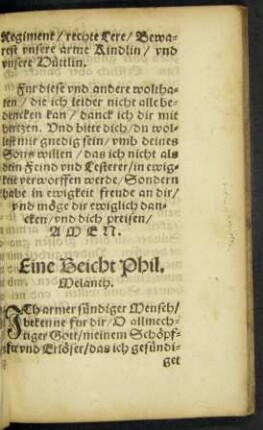 Regiment / rechte Lere / Bewa-
rest vnsere arme Kindlin / vnd
vnsere Hüttlin.
Fur diese vnd andere woltha-
ten / die ich leider nicht alle be-
dencken kan / danck ich dir mit
hertzen. Vnd bitte dich / du wol-
lest mir gnedig sein / vmb deines
Sons willen / das ich nicht als
dein Feind vnd Lesterer / in ewig-
keit verworffen werde / Sondern
habe in ewigkeit freude an dir /
vnd möge dir ewiglich dan-
cken / vnd dich preisen /
AMEN.
Eine Beicht Phil.
Melanth.
ICh armer sündiger Mensch /
bekenne fur dir / O allmech-
tiger Gott / meinem Schöpf-
fer vnd Erlöser / das ich gesündi-
get